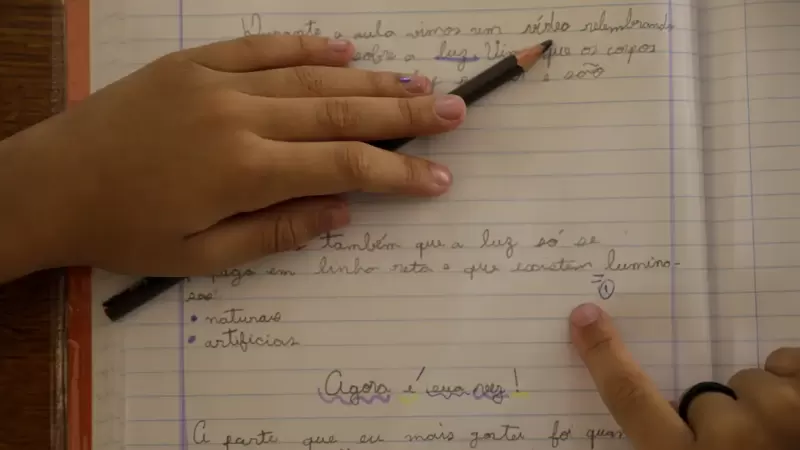 Durante a aula vimos um vídeo relembrando
sobre a luz. Vim que os corpos
e são
também que a luz só se
em linha reta e que existem lumino-
sos
1
• naturas
• artificias
Agora é sua vez!
A parte que eu mais gostei foi quan